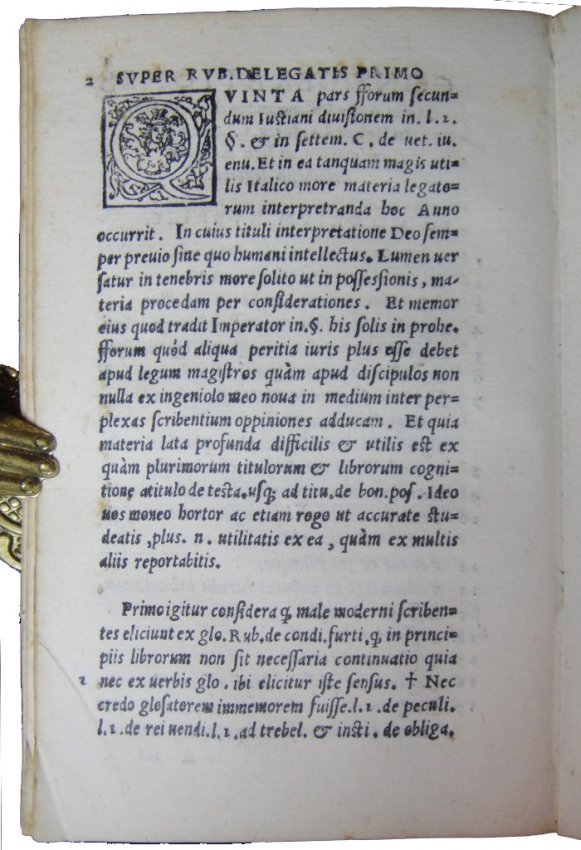 2 SVPER RVB. DELEGATIS PRIMO
QVINTA pars fforum secun=
dum Iustiani diuisionem in. l. 2.
§. & in settem. C. de uet. iu.
enu. Et in ea tanquam magis uti=
lis Italico more materia legato=
rum interpretranda hoc Anno
occurrit. In cuius tituli interpretatione Deo sem=
per preuio sine quo humani intellectus. Lumen uer
satur in tenebris more solito ut in possessionis, ma-
teria procedam per considerationes. Et memor
eius quod tradit Imperator in. §. his solis in prohe.
fforum quòd aliqua peritia iuris plus esse debet
apud legum magistros quàm apud discipulos non
nulla ex ingeniolo meo noua in medium inter per=
plexas scribentium oppiniones adducam. Et quia
materia lata profunda difficilis & utilis est ex
quàm plurimorum titulorum & librorum cogni=
tione atitulo de testa. usq; ad titu. de bon. pos. Ideo
uos moneo hortor ac etiam rogo ut accurate stu=
deatis, plus. n. utilitatis ex ea, quàm ex multis
aliis reportabitis.
Primo igitur considera q, male moderni scriben=
tes eliciunt ex glo. Rub. de condi. furti. q, in princi=
piis librorum non sit necessaria continuatio quia
1 nec ex uerbis glo. ibi elicitur iste sensus. † Nec
credo glosatorem immemorem fuisse. l. 1. de peculi.
l. 1. de rei uendi. l. 1. ad trebel. & insti. de obliga.